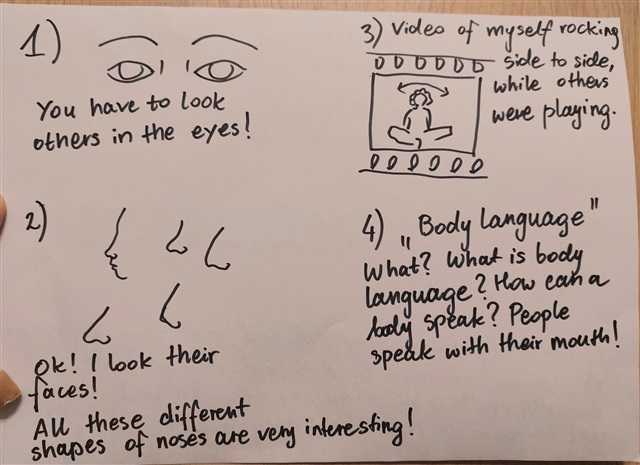 1)
You have to look
others in the eyes!
2)
Ok! I look their
faces!
All these different
shapes of noses are very interesting!
3) Video of myself rocking
side to side,
while others
were playing.
4) „Body Language"
What? What is body
language? How can a
body speak? People
speak with their mouth!